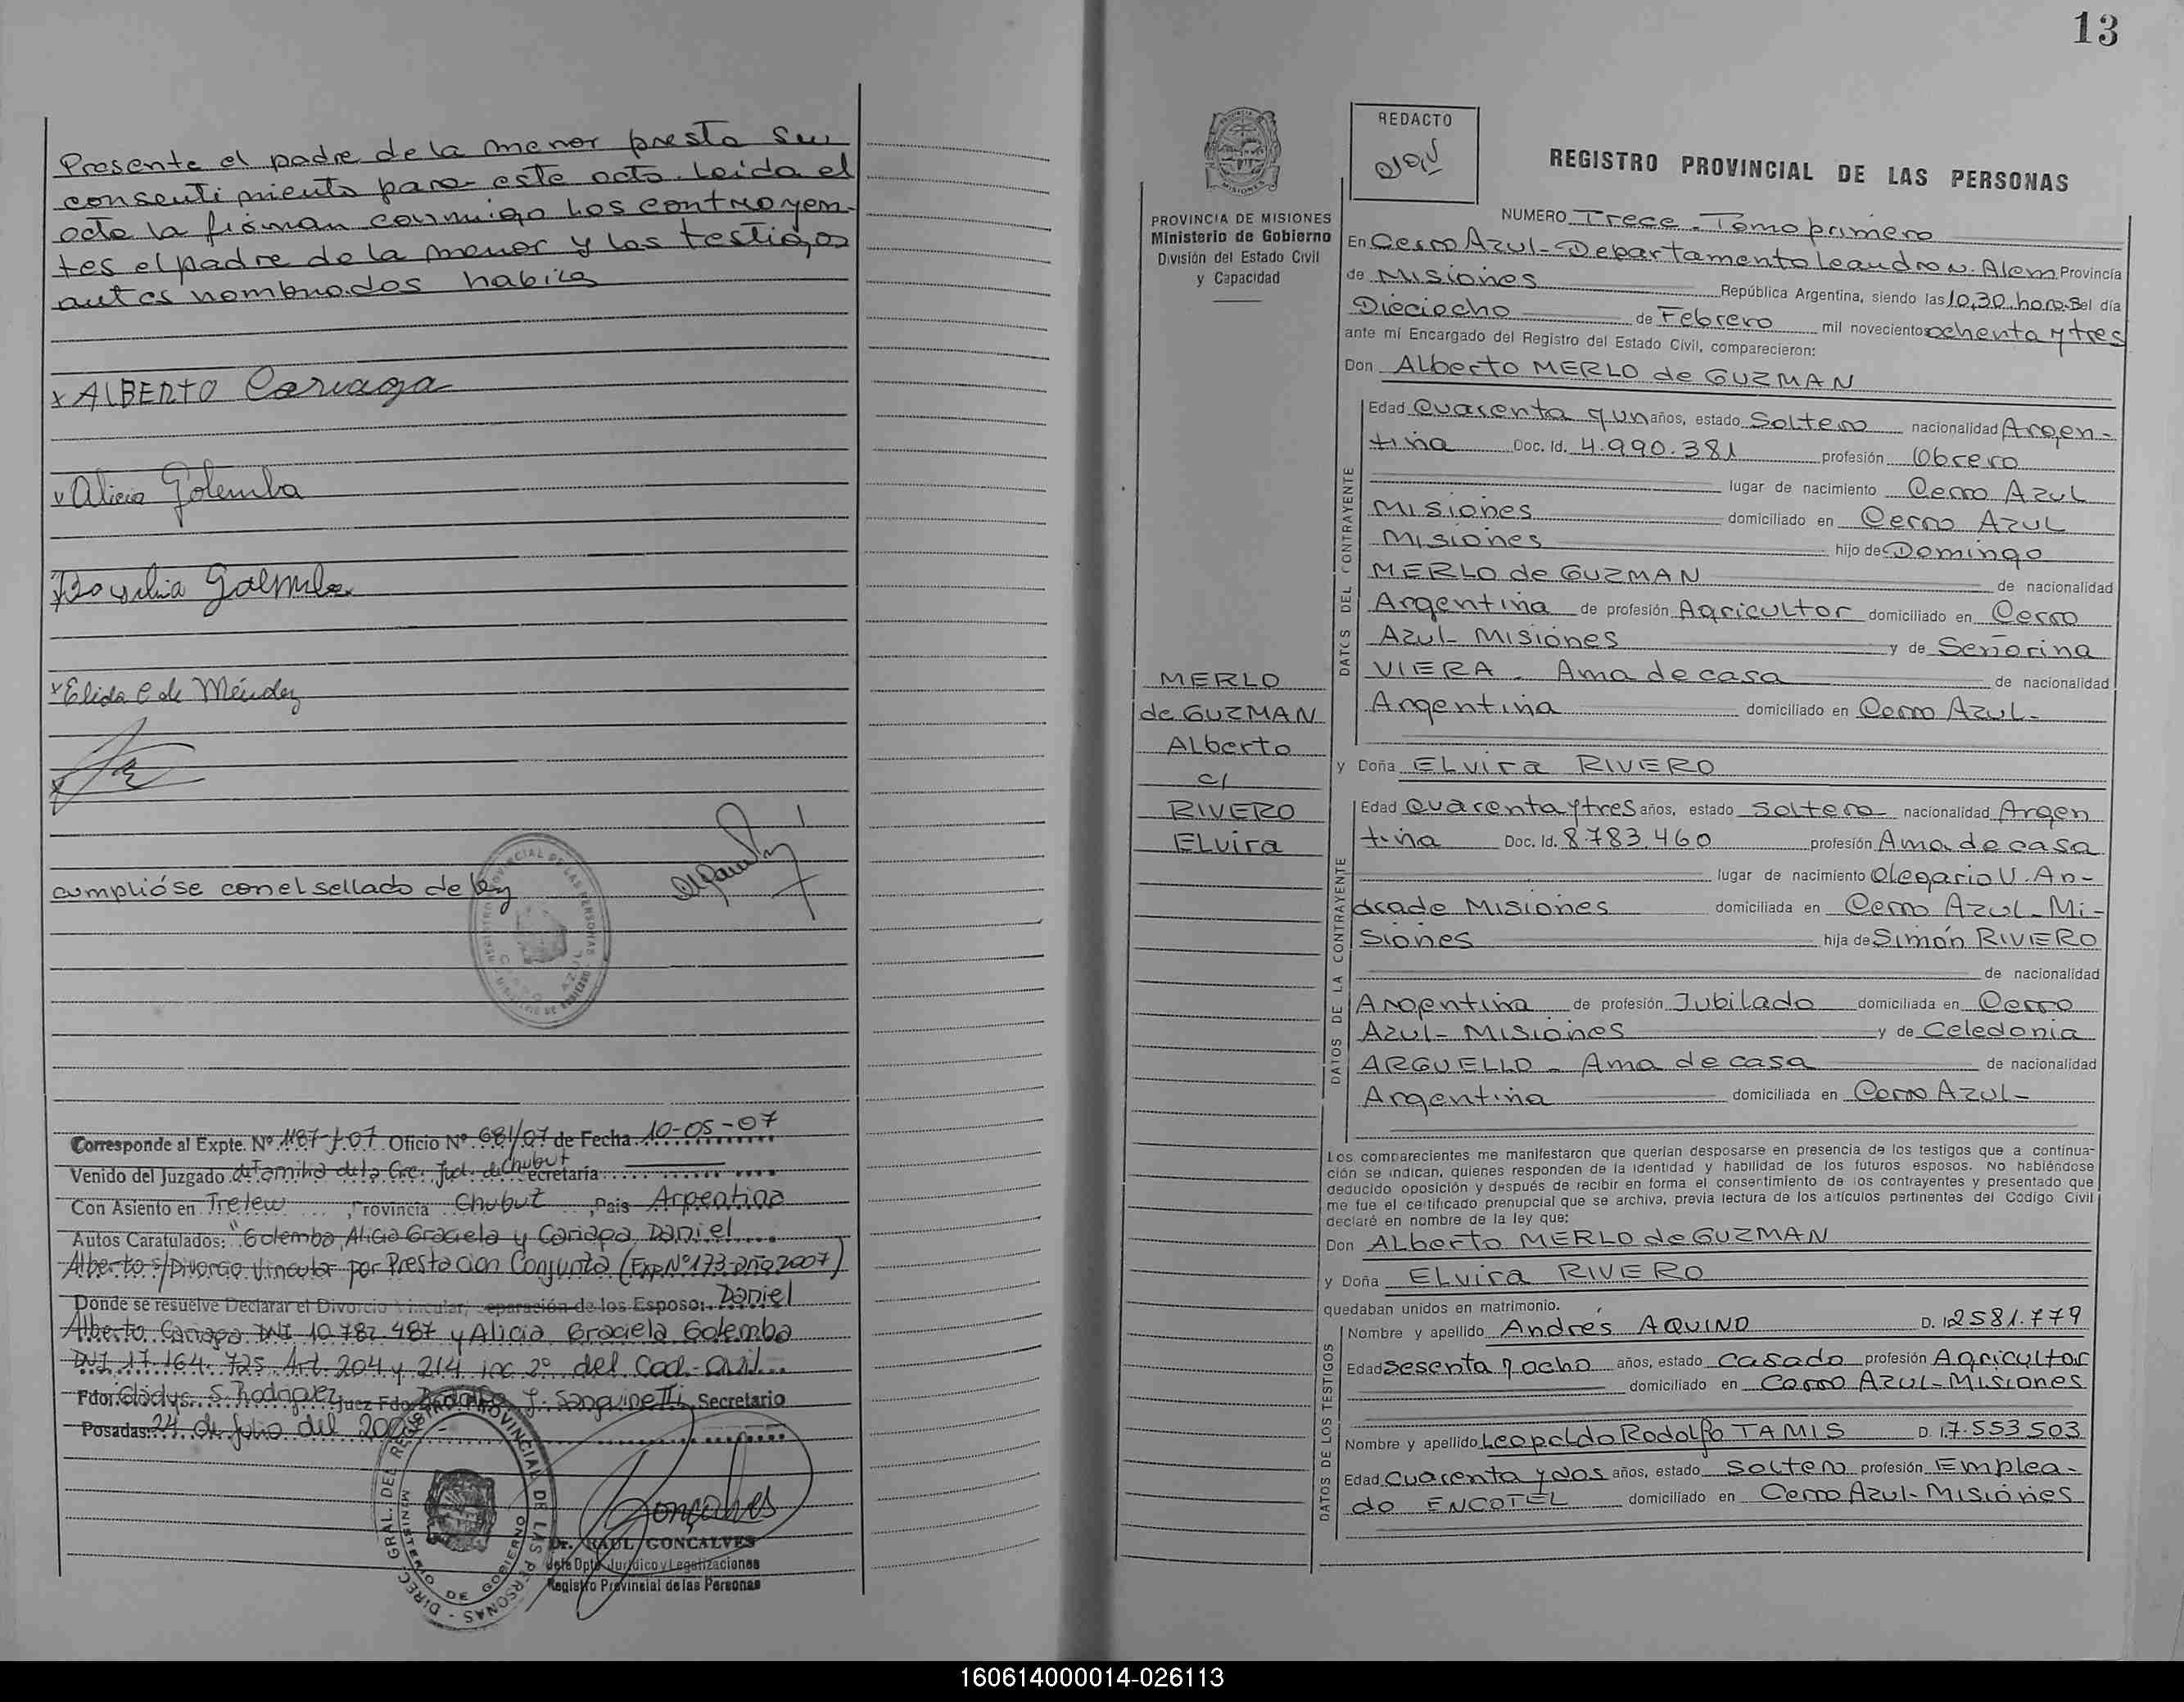 Presente el padre de la menor presta su
consentimiento para este acto. Leida el
acta la firman conmigo los contrayen-
tes el padre de la menor y los testigos
antes nombrados habiles
x ALBERTO Cariaga
x Alicia Golemba
x Elida C de Méndez
cumplióse con el sellado de ley
Corresponde al Expte. Nº 1187-J-07 Oficio Nº 681/07 de Fecha 10-05-07
Venido del Juzgado de Familia de la Cre. Jud. de Chubut Secretaría
Con Asiento en Trelew, Provincia Chubut, Pais Argentina
Autos Caratulados: "Golemba, Alicia Graciela y Cariaga, Daniel
Alberto s/Divorcio Vincular por Prestacion Conjunta (Exp. Nº 173-año 2007)
Donde se resuelve Declarar el Divorcio Vincular, separación de los Esposo: Daniel
Alberto Cariaga DNI 10.782.487 y Alicia Graciela Golemba
DNI 17.164.725 Art. 204 y 214 inc 2º del Cod. Civil
Fdor: Gladys S. Rodriguez Juez Fdo. Rodolfo J. Sanguinetti, Secretario
Posadas: 24 de Julio del
DIREC. GRAL. DEL REGISTRO PROVINCIAL DE LAS PERSONAS - MINISTERIO DE GOBIERNO
Dr. RAUL GONCALVES
Jefe Dpto. Jurídico y Legalizaciones
Registro Provincial de las Personas
13
PROVINCIA DE MISIONES
Ministerio de Gobierno
División del Estado Civil
y Capacidad
REDACTO
REGISTRO PROVINCIAL DE LAS PERSONAS
NUMERO Trece - Tomo primero
En Cerro Azul - Departamento Leandro N. Alem Provincia
de Misiones República Argentina, siendo las 10,30 horas del día
Dieciocho de Febrero mil novecientos ochenta y tres
ante mí Encargado del Registro del Estado Civil, comparecieron:
Don Alberto MERLO de GUZMAN
MERLO
de GUZMAN
Alberto
c/
RIVERO
Elvira
DATOS DEL CONTRAYENTE
Edad Cuarenta y un años, estado Soltero nacionalidad Argen-
tina Doc. Id. 4.990.381 profesión Obrero
lugar de nacimiento Cerro Azul
Misiones domiciliado en Cerro Azul
Misiones hijo de Domingo
MERLO de GUZMAN de nacionalidad
Argentina de profesión Agricultor domiciliado en Cerro
Azul - Misiones y de Señorina
VIERA - Ama de casa de nacionalidad
Argentina domiciliado en Cerro Azul-
y Doña Elvira RIVERO
DATOS DE LA CONTRAYENTE
Edad Cuarenta y tres años, estado Soltera nacionalidad Argen
tina Doc. Id. 8.783.460 profesión Ama de casa
lugar de nacimiento Olegario V. An-
drade Misiones domiciliada en Cerro Azul - Mi-
siones hija de Simón RIVERO
de nacionalidad
Argentina de profesión Jubilado domiciliada en Cerro
Azul - Misiones y de Celedonia
ARGUELLO - Ama de casa de nacionalidad
Argentina domiciliada en Cerro Azul-
Los comparecientes me manifestaron que querían desposarse en presencia de los testigos que a continua-
ción se indican, quienes responden de la identidad y habilidad de los futuros esposos. No habiéndose
deducido oposición y después de recibir en forma el consentimiento de los contrayentes y presentado que
me fue el certificado prenupcial que se archiva, previa lectura de los artículos pertinentes del Código Civil
declaré en nombre de la ley que:
Don Alberto MERLO de GUZMAN
y Doña Elvira RIVERO
quedaban unidos en matrimonio.
DATOS DE LOS TESTIGOS
Nombre y apellido Andrés AQUINO D. I. 2581.779
Edad Sesenta y ocho años, estado Casado profesión Agricultor
domiciliado en Cerro Azul - Misiones
Nombre y apellido Leopoldo Rodolfo TAMIS D. I. 7.553.503
Edad Cuarenta y dos años, estado Soltero profesión Emplea-
do ENCOTEL domiciliado en Cerro Azul - Misiones
160614000014-026113